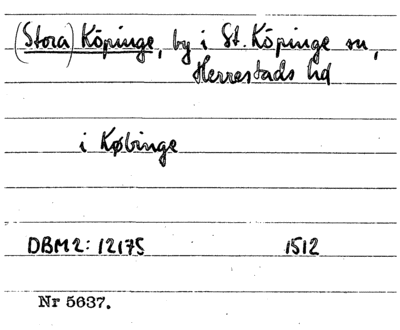 (Stora) Köpinge, by i St. Köpinge sn,
Herrestads hd
i Købinge
DBM2: 12175 1512
Nr 5637.